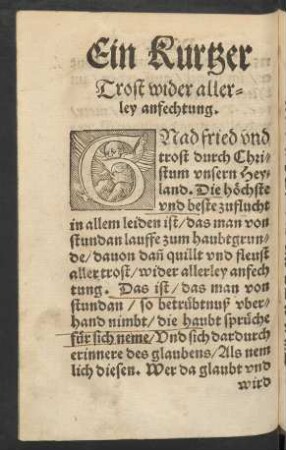 Ein Kurtzer
Trost wider aller-
ley anfechtung.
GNad fried vnd
trost durch Chri-
stum vnsern Hey-
land. Die höchste
vnd beste zuflucht
in allem leiden ist/ das man von
stundan lauffe zum haubtgrun-
de/ dauon dañ quillt vnd fleust
aller trost/ wider allerley anfech
tung. Das ist/ das man von
stundan / so betrübtnuß vber-
hand nimbt/ die haubt sprüche
für sich neme/ Vnd sich dardurch
erinnere des glaubens/ Als nem
lich diesen. Wer da glaubt vnd
wird